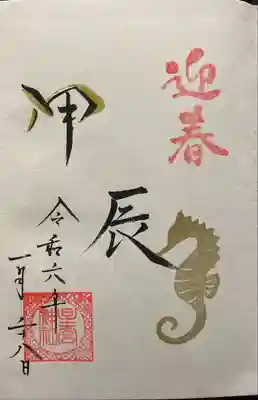 迎春
甲
辰
令和六年
一月二十八日